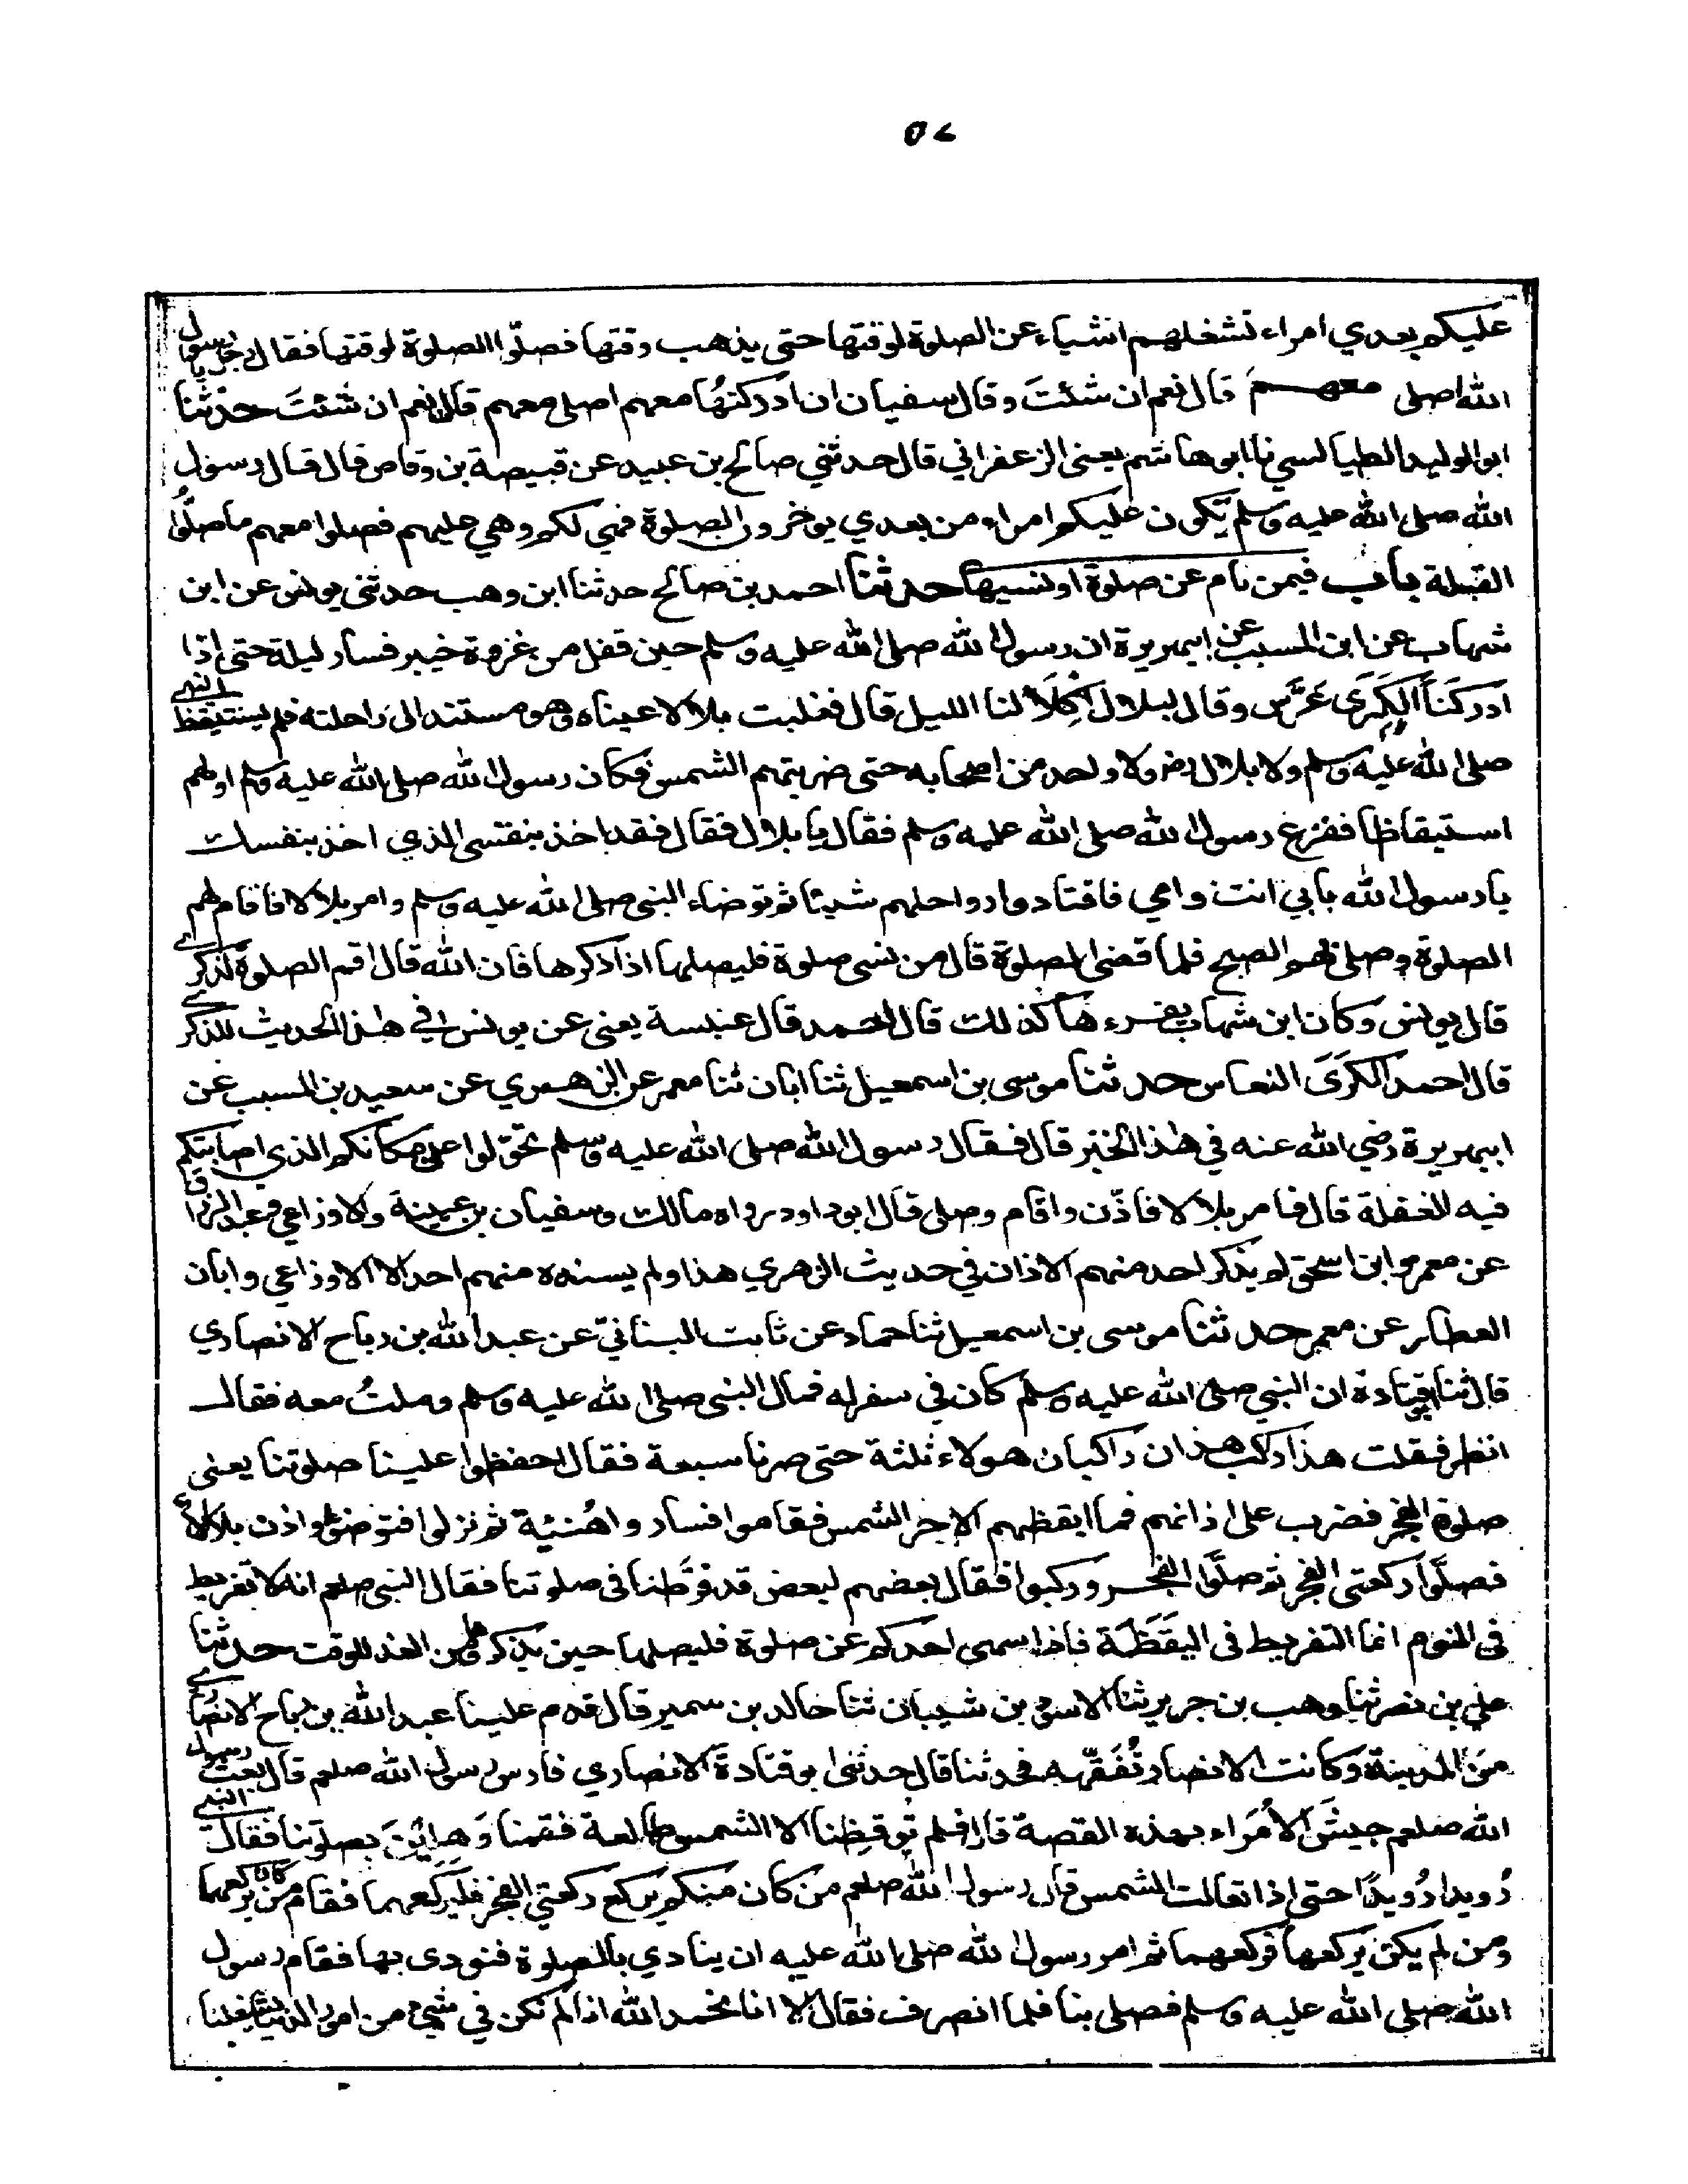 ٥٧
عليكم بعدي امراء تشغلهم اشياء عن الصلوة لوقتها حتى يذهب وقتها فصلّوا الصلوة لوقتها فقال رجل يا رسول
الله اصلى معهم قال نعم ان شئتَ وقال سفيان ان ادركتُها معهم اصلى معهم قال نعم ان شئتَ حدثنا
ابو الوليد الطيالسي نا ابو هاشم يعنى الزعفراني قال حدثني صالح بن عبيد عن قبيصة بن وقاص قال قال رسول
الله صلى الله عليه وسلم يكون عليكم امراء من بعدي يوخرون الصلوة فهي لكم وهي عليهم فصلوا معهم ما صلُّوا
القبلة باب فيمن نام عن صلوة او نسيها حدثنا احمد بن صالح حدثنا ابن وهب حدثنى يونس عن ابن
شهاب عن ابن المسيب عن ابيهريرة ان رسول الله صلى الله عليه وسلم حين قفل من غزوة خيبر فسار ليلة حتى اذا
ادركَنَا الكَرَى عَرَّس وقال لبلال اِكْلَأْ لنا الليل قال فغلبت بلالا عيناه وهو مستند الى راحلته فلم يستيقظ النبي
صلى الله عليه وسلم ولا بلال رض ولا واحد من اصحابه حتى ضربتهم الشمس فكان رسول الله صلى الله عليه وسلم اولهم
استيقاظا ففزع رسول الله صلى الله عليه وسلم فقال يا بلال فقال فقد اخذ بنفسى الذي اخذ بنفسك
يا رسول الله بابي انت وامي فاقتادوا رواحلهم شيئا ثم توضاء النبى صلى الله عليه وسلم وامر بلالا فاقام لهم
الصلوة وصلى لهم الصبح فلما قضى الصلوة قال من نسى صلوة فليصلها اذا ذكرها فان الله قال اقم الصلوة لذكرى
قال يونس وكان ابن شهاب يقرءها كذلك قال احمد قال عنبسة يعنى عن يونس في هذا الحديث للذكرى
قال احمد الكَرَى النعاس حدثنا موسى بن اسمعيل ثنا ابان ثنا معمر عن الزهري عن سعيد بن المسيب عن
ابيهريرة رضي الله عنه في هذا الخبر قال فقال رسول الله صلى الله عليه وسلم تحوّلوا عن مكانكم الذي اصابتكم
فيه الغفلة قال فامر بلالا فاذّن واقام وصلى قال ابو داود رواه مالك وسفيان بن عيينة والاوزاعي وعبد الرزاق
عن معمر وابن اسحق لم يذكر احد منهم الاذان في حديث الزهري هذا ولم يسنده منهم احد الا الاوزاعي وابان
العطار عن معمر حدثنا موسى بن اسمعيل ثنا حماد عن ثابت البنانيّ عن عبد الله بن رباح الانصاري
قال ثنا ابو قتادة ان النبي صلى الله عليه وسلم كان في سفر له فمال النبى صلى الله عليه وسلم وملتُ معه فقال
انظر فقلت هذا راكب هذان راكبان هولاء ثلثة حتى صرنا سبعة فقال احفظوا علينا صلوتنا يعنى
صلوة الفجر فضرب على اذانهم فما ايقظهم الا حر الشمس فقاموا فساروا هُنيّة ثم نزلوا فتوضئوا واذن بلال
فصلَّوا ركعتى الفجر ثم صلَّوا الفجر وركبوا فقال بعضهم لبعض قد فرّطنا فى صلوتنا فقال النبى صلعم انه لا تفريط
فى النوم انما التفريط فى اليقَظَة فاذا سهى احدكم عن صلوة فليصلها حين يذكرها ومن الغد للوقت حدثنا
علي بن نصر ثنا وهب بن جرير ثنا الاسود بن شيبان ثنا خالد بن سمير قال قدم علينا عبد الله بن رباح الانصاري
من المدينة وكانت الانصار تُفَقّهه فحدثنا قال حدثنى ابو قتادة الانصاري فارس رسول الله صلعم قال بعث رسول
الله صلعم جيشَ الاُمَراء بهذه القصة قال فلم توقِظنا الا الشمس طالعة فقمنا وَهِلِيْنَ بصلوتنا فقال النبي
رُويدا رُويدًا حتى اذا تعالت الشمس قال رسول الله صلعم من كان منكم يركع ركعتي الفجر فليركعهما فقام من كان يركعهما
ومن لم يكن يركعهما فركعهما ثم امر رسول الله صلى الله عليه ان ينادي بالصلوة فنودى بها فقام رسول
الله صلى الله عليه وسلم فصلى بنا فلما انصرف فقال الا انا نحمد الله انا لم نكن في شيئ من امور الدنيا يشغلنا